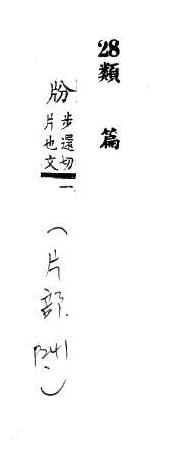 28類篇
步還切
片也文
一
(片部